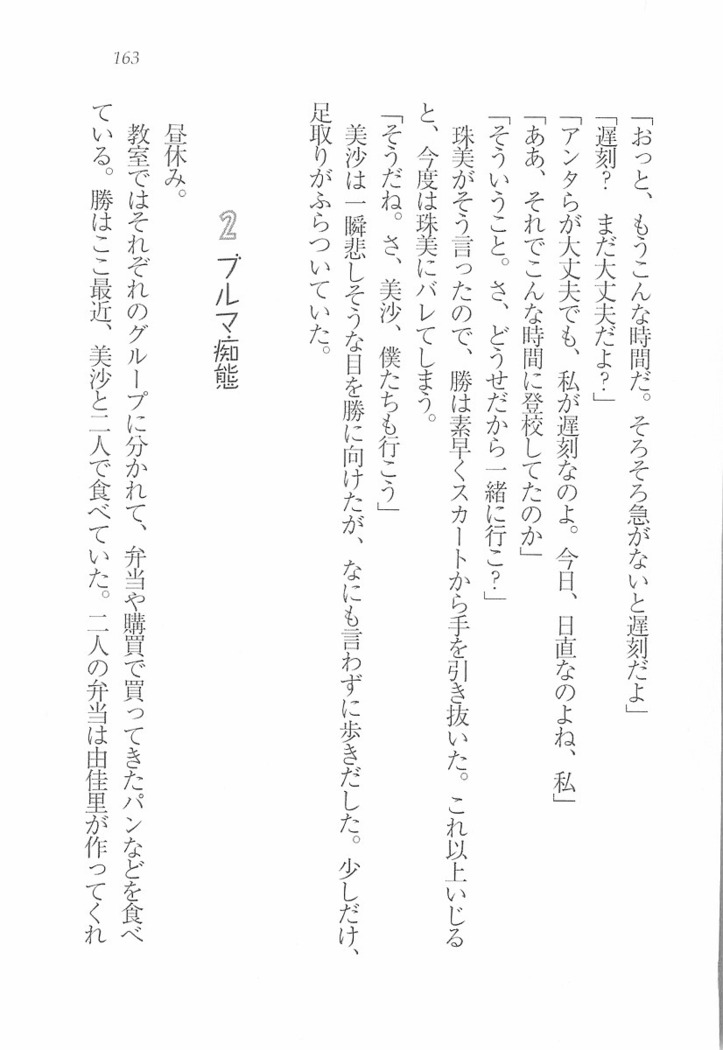 163
「おっと、もうこんな時間だ。そろそろ急がないと遅刻だよ」
「遅刻？　まだ大丈夫だよ？」
「アンタらが大丈夫でも、私が遅刻なのよ。今日、日直なのよね、私」
「ああ、それでこんな時間に登校してたのか」
「そういうこと。さ、どうせだから一緒に行こ？」
　珠美がそう言ったので、勝は素早くスカートから手を引き抜いた。これ以上いじる
と、今度は珠美にバレてしまう。
「そうだね。さ、美沙、僕たちも行こう」
　美沙は一瞬悲しそうな目を勝に向けたが、なにも言わずに歩きだした。少しだけ、
足取りがふらついていた。
2 ブルマ痴態
　昼休み。
　教室ではそれぞれのグループに分かれて、弁当や購買で買ってきたパンなどを食べ
ている。勝はここ最近、美沙と二人で食べていた。二人の弁当は由佳里が作ってくれ